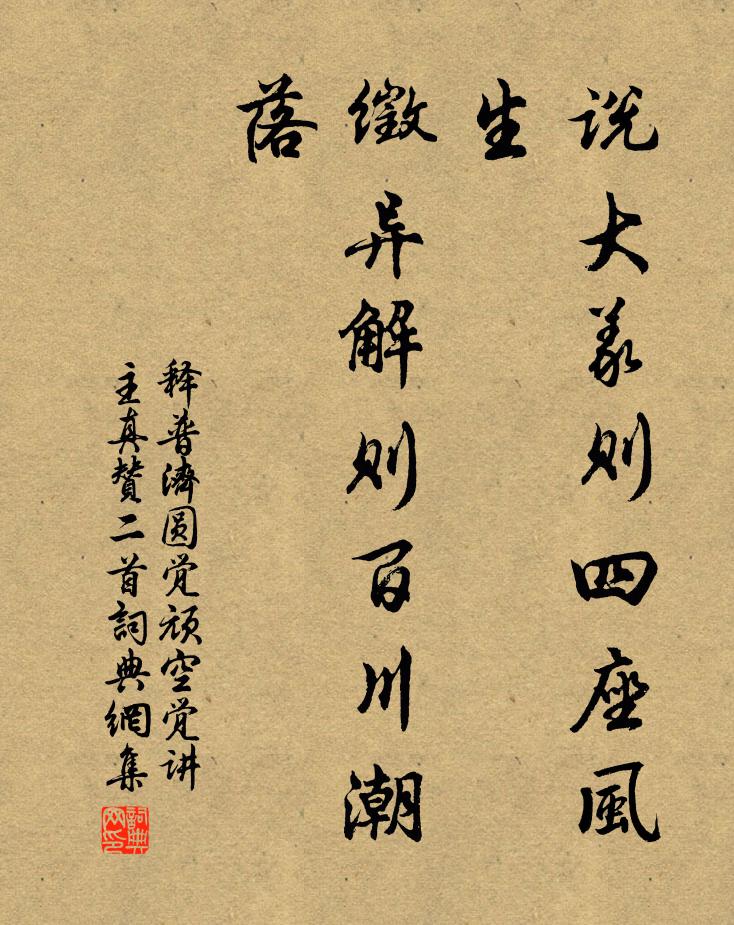 说大义则四座風
生
徵异解则百川潮
落
释普濟圆觉頑空觉讲
主真贊二首詞典網集
詞典
网印